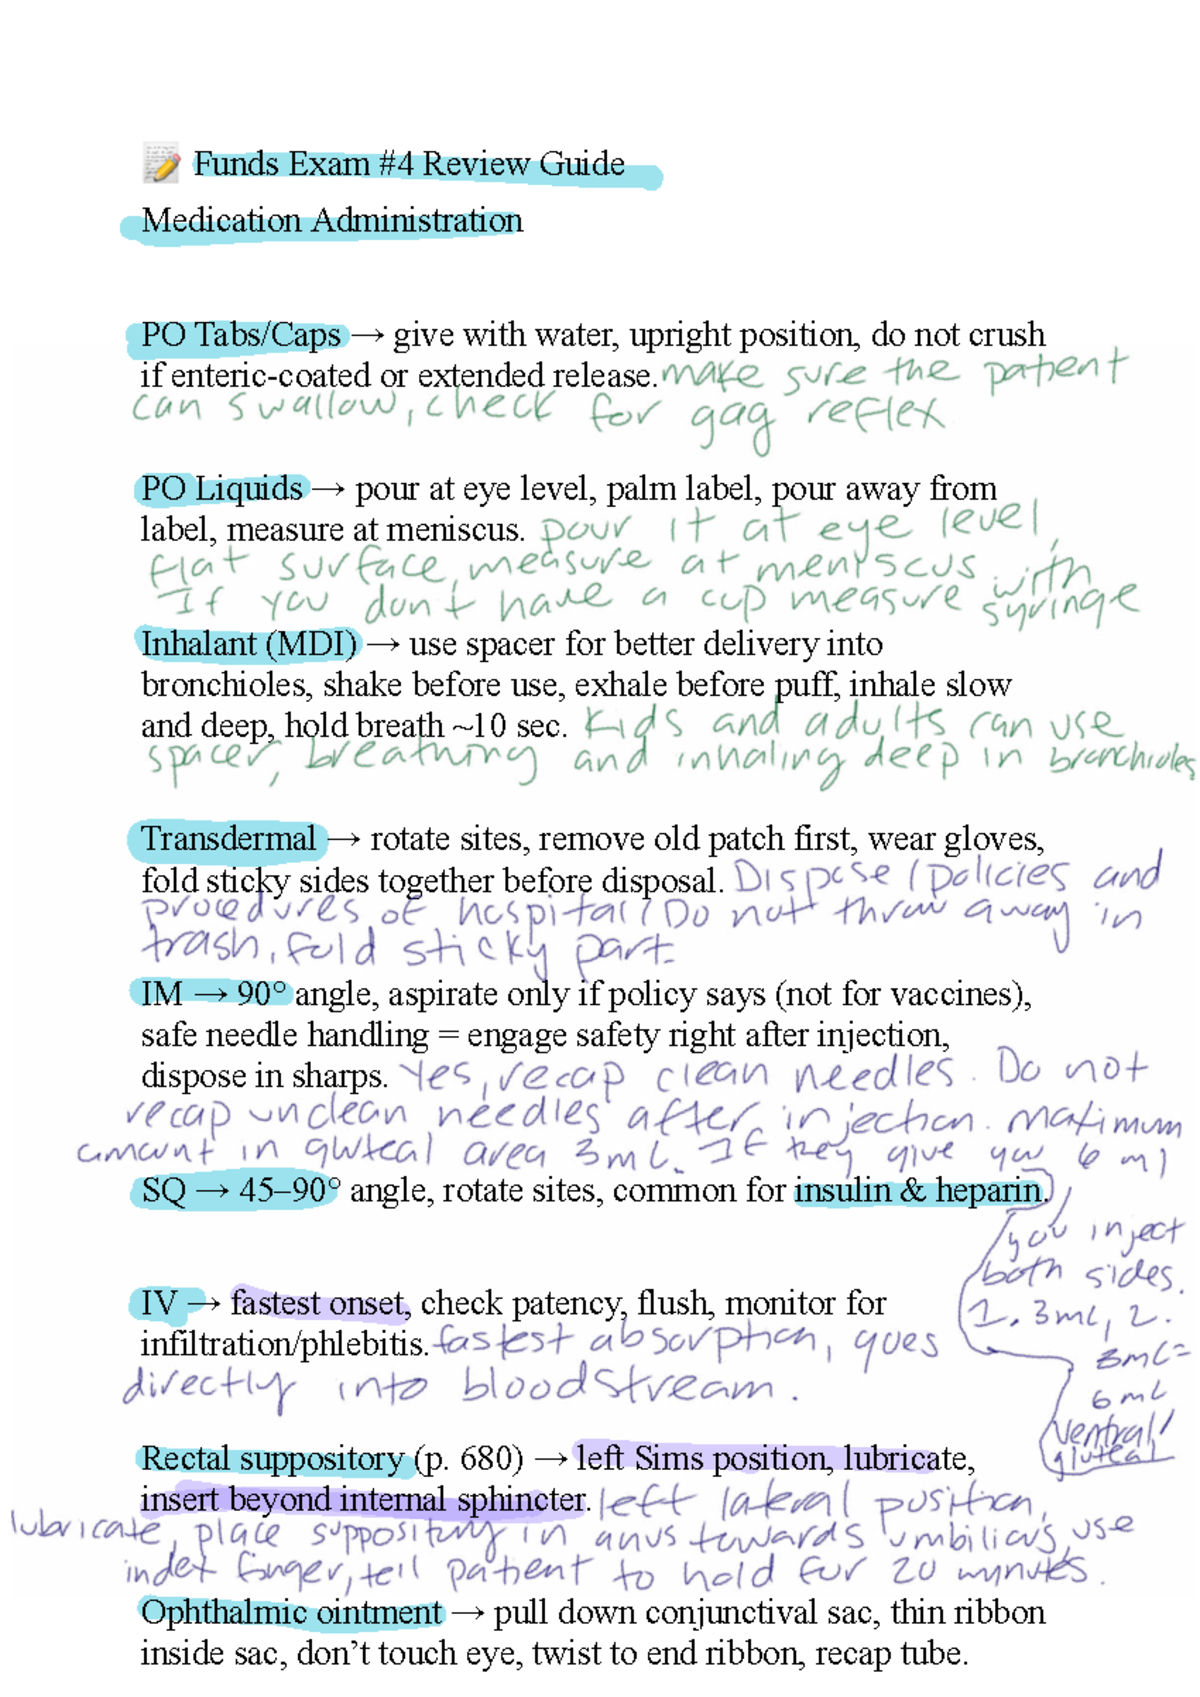 📝 Funds Exam #4 Review Guide
Medication Administration
PO Tabs/Caps → give with water, upright position, do not crush
if enteric-coated or extended release. make sure the patient
can swallow, check for gag reflex
PO Liquids → pour at eye level, palm label, pour away from
label, measure at meniscus. pour it at eye level,
flat surface, measure at menyscus with
If you don't have a cup measure syringe
Inhalant (MDI) → use spacer for better delivery into
bronchioles, shake before use, exhale before puff, inhale slow
and deep, hold breath ~10 sec. Kids and adults can use
spacer, breathing and inhaling deep in bronchioles
Transdermal → rotate sites, remove old patch first, wear gloves,
fold sticky sides together before disposal. Dispose / policies and
procedures of hospital / Do not throw away in
trash, fold sticky part.
IM → 90° angle, aspirate only if policy says (not for vaccines),
safe needle handling = engage safety right after injection,
dispose in sharps. Yes, recap clean needles. Do not
recap unclean needles after injection. Maximum
amount in gluteal area 3mL. If they give you 6 ml
SQ → 45–90° angle, rotate sites, common for insulin & heparin.
you inject
both sides.
1. 3mL, 2.
3mL=
6mL
Ventral/
gluteal
IV → fastest onset, check patency, flush, monitor for
infiltration/phlebitis. fastest absorption, goes
directly into bloodstream.
Rectal suppository (p. 680) → left Sims position, lubricate,
insert beyond internal sphincter. left lateral position,
lubricate, place suppository in anus towards umbilicus, use
index finger, tell patient to hold for 20 mynutes.
Ophthalmic ointment → pull down conjunctival sac, thin ribbon
inside sac, don’t touch eye, twist to end ribbon, recap tube.